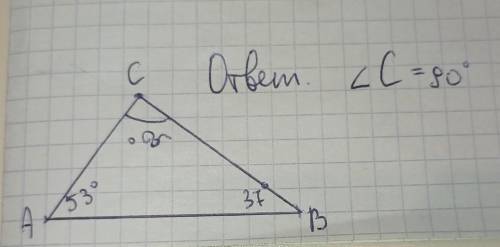 C
Ответ. ∠C=90°
53°
37
A
B